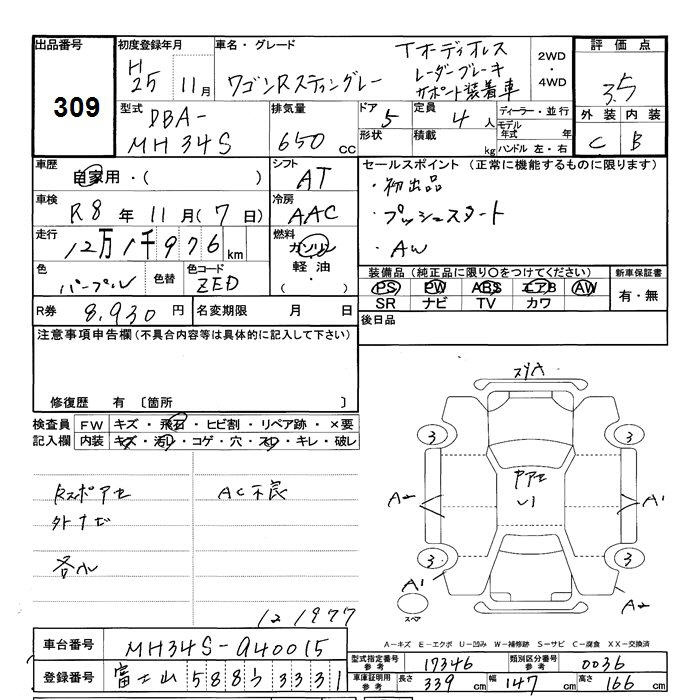 出品番号
309
初度登録年月
H25 11月
車名・グレード
ワゴンRスティングレー
Tオーディオレス
レーダーブレーキ
サポート装着車
2WD
・
4WD
評価点
3.5
外装 内装
C B
型式
DBA-
MH34S
排気量
650 cc
ドア 5
形状
定員 4人
積載 kg
ディーラー・並行
モデル年式 年
ハンドル 左・右
車歴
自家用・( )
シフト
AT
セールスポイント (正常に機能するものに限ります)
・初出品
・プッシュスタート
・AW
車検
R8年11月(7日)
冷房
AAC
走行
12万1千976km
燃料
ガソリン
軽油
( ・ )
色
パープル
色替
色コード
ZED
装備品 (純正品に限り○をつけてください)
PS PW ABS エアB AW
SR ナビ TV カワ
新車保証書
有・無
R券 8,930円
名変期限 月 日
後日品
注意事項申告欄(不具合内容等は具体的に記入して下さい)
修復歴 有 〔箇所 〕
検査員記入欄
FW キズ・飛石・ヒビ割・リペア跡・×要
内装 キズ・汚れ・コゲ・穴・スレ・キレ・破レ
Rスポアセ
外ナビ
各小
AC不良
121977
スリ大
3
3
ヤアセ
U1
A2
A1
3
3
A1
スペア
A2
A-キズ E-エクボ U-凹み W-補修跡 S-サビ C-腐食 XX-交換済
車台番号 MH34S-940015
登録番号 富士山 588 う 3331
型式指定番号 参考 17346
類別区分番号 参考 0036
車庫証明用 参考 長さ 339cm 幅 147cm 高さ 166cm